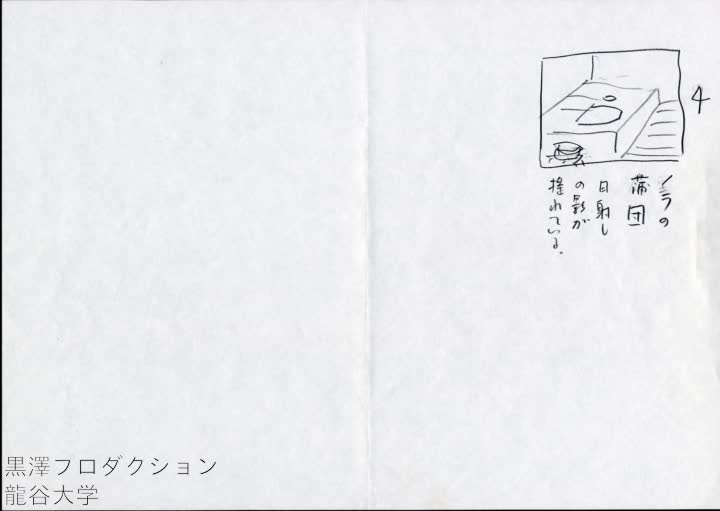 4
蒲団
日射し
の影が
揺れている。
黒澤フロダクション
龍谷大学